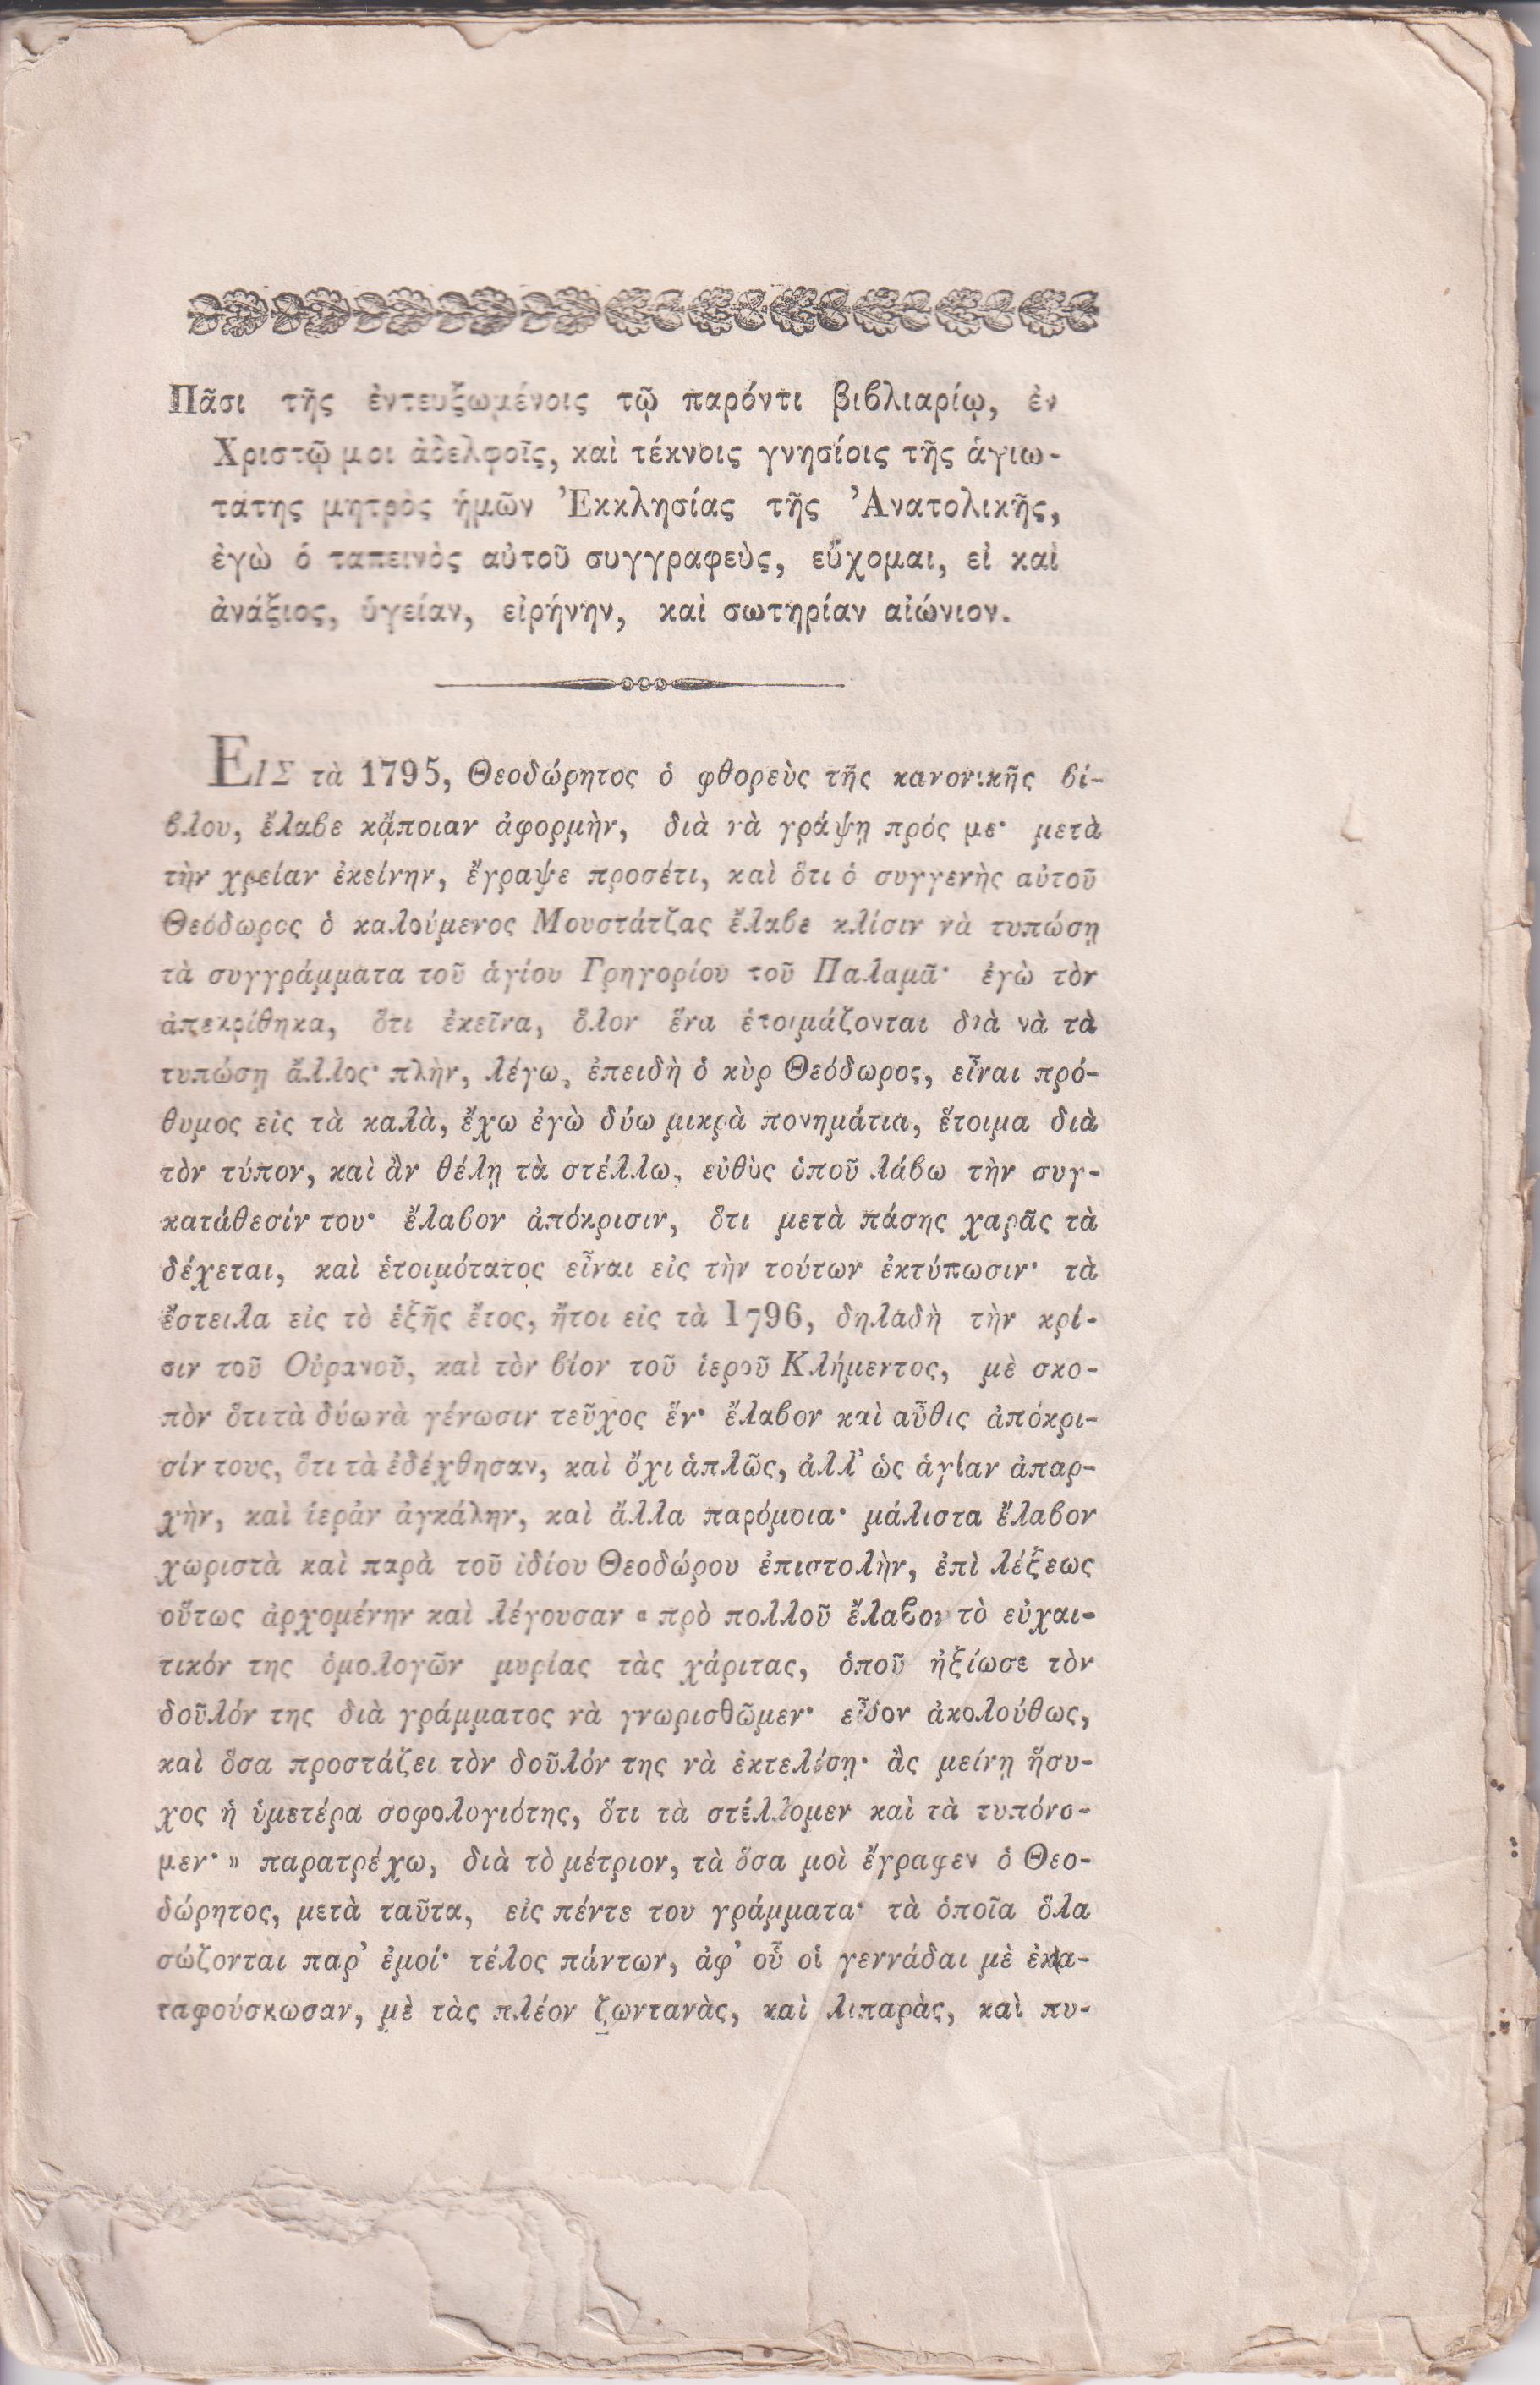 Πᾶσι τῆς ἐντευξωμένοις τῷ παρόντι βιβλιαρίῳ, ἐν
Χριστῷ μοι ἀδελφοῖς, καὶ τέκνοις γνησίοις τῆς ἁγιω-
τάτης μητρὸς ἡμῶν Ἐκκλησίας τῆς Ἀνατολικῆς,
ἐγὼ ὁ ταπεινὸς αὐτοῦ συγγραφεὺς, εὔχομαι, εἰ καὶ
ἀνάξιος, ὑγείαν, εἰρήνην, καὶ σωτηρίαν αἰώνιον.
ΕΙΣ τὰ 1795, Θεοδώρητος ὁ φθορεὺς τῆς κανονικῆς βί-
βλου, ἔλαβε κᾄποιαν ἀφορμὴν, διὰ νὰ γράψῃ πρός με· μετὰ
τὴν χρείαν ἐκείνην, ἔγραψε προσέτι, καὶ ὅτι ὁ συγγενὴς αὐτοῦ
Θεόδωρος ὁ καλούμενος Μουστάτζας ἔλαβε κλίσιν νὰ τυπώσῃ
τὰ συγγράμματα τοῦ ἁγίου Γρηγορίου τοῦ Παλαμᾶ· ἐγὼ τὸν
ἀπεκρίθηκα, ὅτι ἐκεῖνα, ὅλον ἕνα ἑτοιμάζονται διὰ νὰ τὰ
τυπώσῃ ἄλλος· πλὴν, λέγω, ἐπειδὴ ὁ κὺρ Θεόδωρος, εἶναι πρό-
θυμος εἰς τὰ καλὰ, ἔχω ἐγὼ δύω μικρὰ πονημάτια, ἕτοιμα διὰ
τὸν τύπον, καὶ ἂν θέλῃ τὰ στέλλω, εὐθὺς ὁποῦ λάβω τὴν συγ-
κατάθεσίν του· ἔλαβον ἀπόκρισιν, ὅτι μετὰ πάσης χαρᾶς τὰ
δέχεται, καὶ ἑτοιμότατος εἶναι εἰς τὴν τούτων ἐκτύπωσιν· τὰ
ἔστειλα εἰς τὸ ἑξῆς ἔτος, ἤτοι εἰς τὰ 1796, δηλαδὴ τὴν κρί-
σιν τοῦ Οὐρανοῦ, καὶ τὸν βίον τοῦ ἱεροῦ Κλήμεντος, μὲ σκο-
πὸν ὅτι τὰ δύω νὰ γένωσιν τεῦχος ἕν· ἔλαβον καὶ αὖθις ἀπόκρι-
σίν τους, ὅτι τὰ ἐδέχθησαν, καὶ ὄχι ἁπλῶς, ἀλλ’ ὡς ἁγίαν ἀπαρ-
χὴν, καὶ ἱερὰν ἀγκάλην, καὶ ἄλλα παρόμοια· μάλιστα ἔλαβον
χωριστὰ καὶ παρὰ τοῦ ἰδίου Θεοδώρου ἐπιστολὴν, ἐπὶ λέξεως
οὕτως ἀρχομένην καὶ λέγουσαν « πρὸ πολλοῦ ἔλαβον τὸ εὐχαι-
τικόν της ὁμολογῶν μυρίας τὰς χάριτας, ὁποῦ ἠξίωσε τὸν
δοῦλόν της διὰ γράμματος νὰ γνωρισθῶμεν· εἶδον ἀκολούθως,
καὶ ὅσα προστάζει τὸν δοῦλόν της νὰ ἐκτελέσῃ· ἂς μείνῃ ἥσυ-
χος ἡ ὑμετέρα σοφολογιότης, ὅτι τὰ στέλλομεν καὶ τὰ τυπόνο-
μεν· » παρατρέχω, διὰ τὸ μέτριον, τὰ ὅσα μοὶ ἔγραφεν ὁ Θεο-
δώρητος, μετὰ ταῦτα, εἰς πέντε του γράμματα· τὰ ὁποῖα ὅλα
σώζονται παρ’ ἐμοί· τέλος πάντων, ἀφ’ οὗ οἱ γεννάδαι μὲ ἐκα-
ταφούσκωσαν, μὲ τὰς πλέον ζωντανὰς, καὶ λιπαρὰς, καὶ πυ-